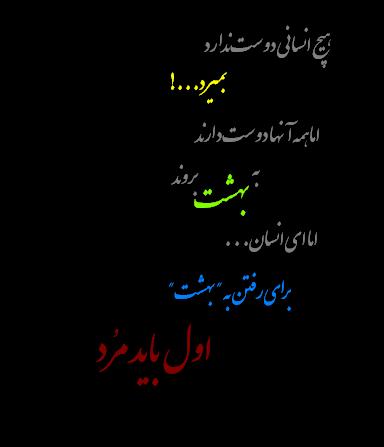 هیچ انسانی دوست ندارد
بمیرد...!
اما همه آنها دوست دارند
به بهشت بروند
اما ای انسان...
برای رفتن به "بهشت"
اول باید مُرد